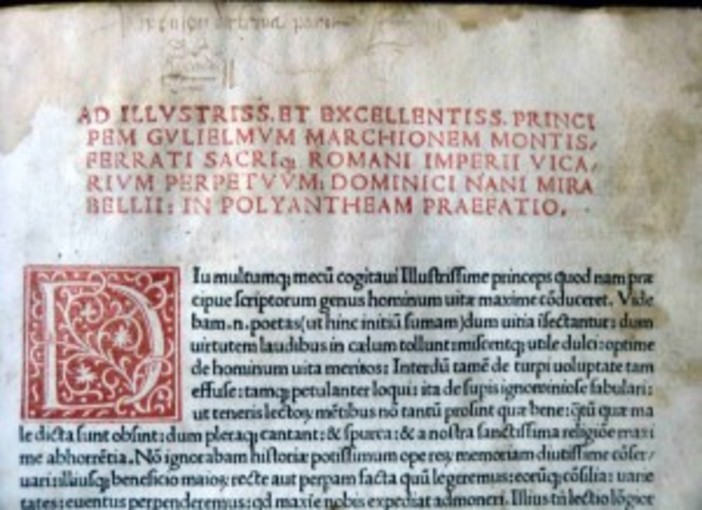 AD ILLVSTRISS. ET EXCELLENTISS. PRINCI
PEM GVLIELMVM MARCHIONEM MONTIS,
FERRATI SACRIqꝫ ROMANI IMPERII VICA,
RIVM PERPETVVM: DOMINICI NANI MIRA
BELLII: IN POLYANTHEAM PRAEFATIO.
DIu multumqꝫ mecū cogitaui Illustrissime princeps quod nam præ
cipue scriptorum genus hominum uitæ maxime cōduceret. Vide
bam.n.poetas(ut hinc initiū sumam)dum uitia īsectantur: dum
uirtutem laudibus in cælum tollunt:miscentqꝫ utile dulci:optime
de hominum uita meritos: Interdū tamē de turpi uoluptate tam
effuse:tamqꝫ petulanter loqui: ita de supis ignominiose fabulari:
ut teneris lectoꝝ mētibus nō tantū prosint quæ bene:q̃tū quæ ma
le dicta sunt obsint:dum pleraqꝫ cantant:& spurca:& a nostra sanctissima religiōe maxi
me abhorrētia. Nō ignorabam historiæ potissimum ope reꝝ memoriam diutissime cōser/
uari:illiusqꝫ beneficio maioꝝ recte aut perpam facta quū legeremus:eorūqꝫ cōsilia: uarie
tates:euentus perpenderemus:qd maxīe nobis expediat admoneri. Illius tñ lectio lōgior